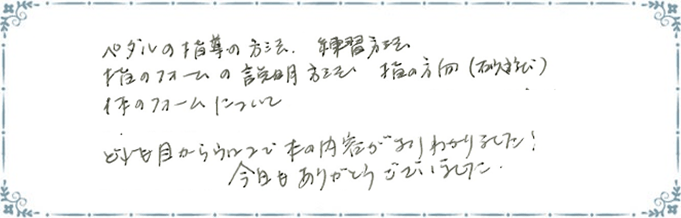 ペダルの指導の方法、練習方法
指のフォームの説明方法 指の方向(砂遊び)
体のフォームについて
どれも目からウロコで本の内容がよりわかりました!
今日もありがとうございました.